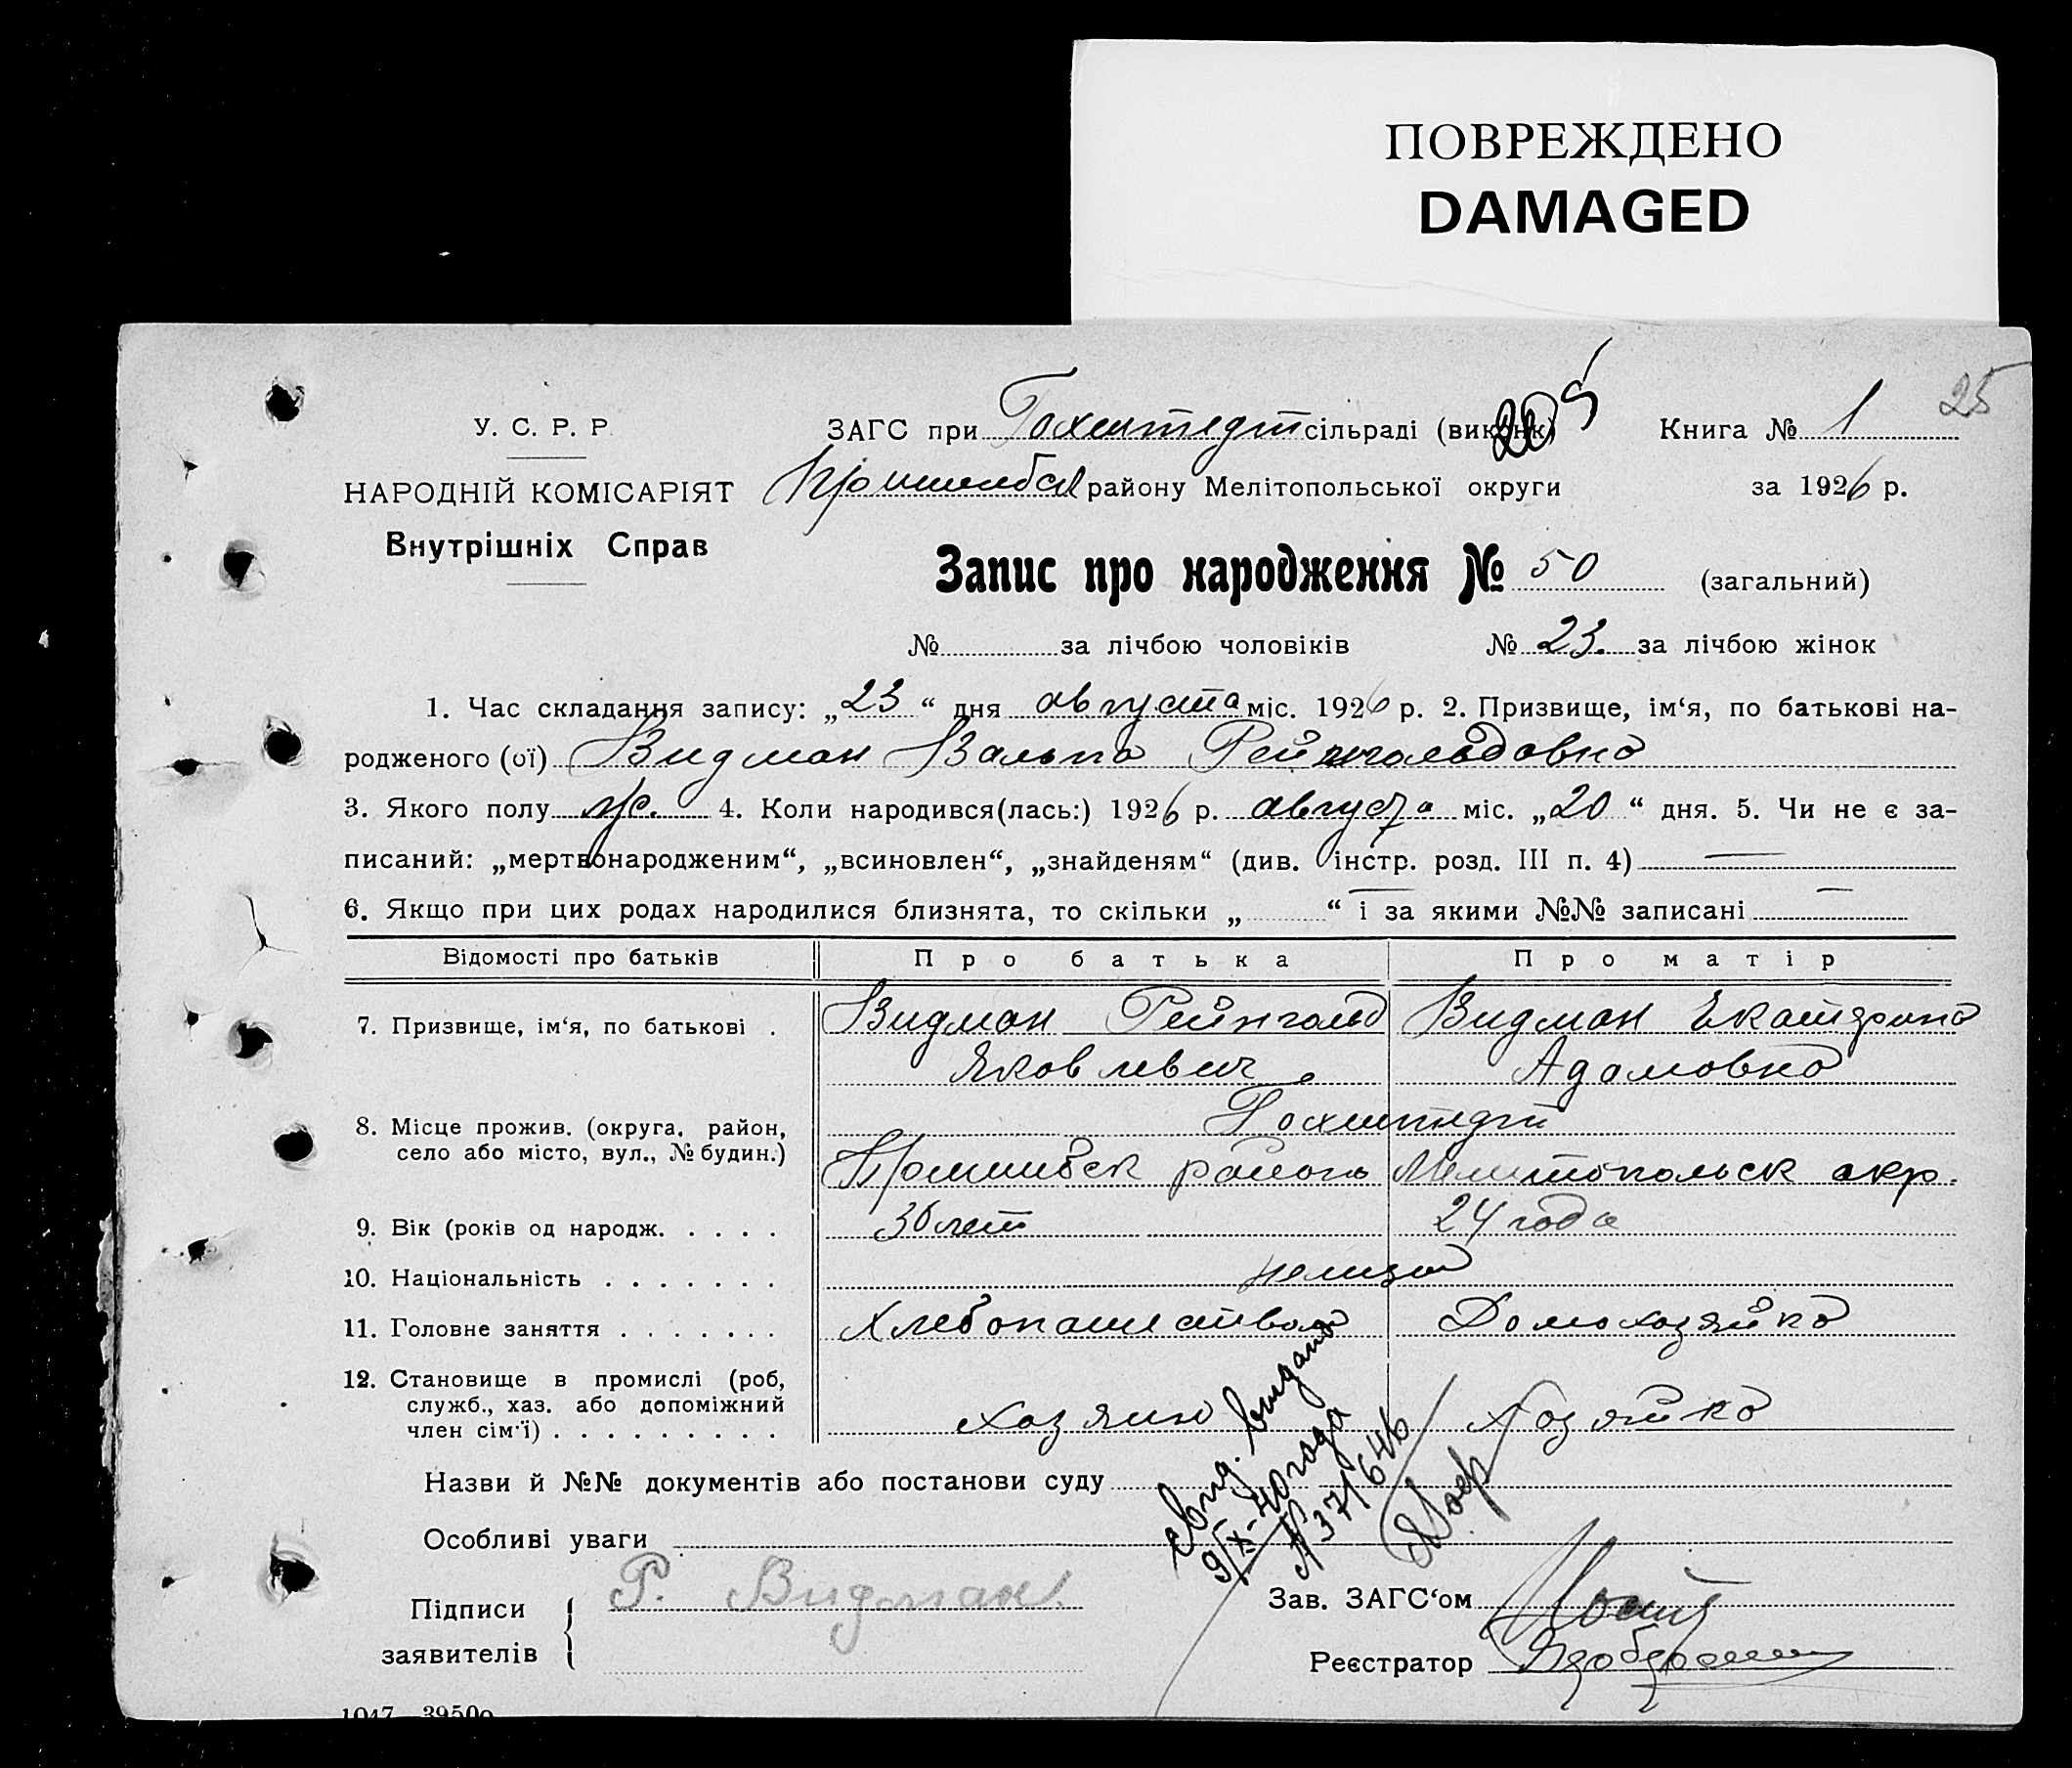 ПОВРЕЖДЕНО
DAMAGED
25
У. С. Р. Р.
НАРОДНІЙ КОМІСАРІЯТ
Внутрішніх Справ
ЗАГС при Гохштедт сільраді (виконк) Книга № 1
району Мелітопольської округи за 1926 р.
Запис про народження № 50 (загальний)
№ за лічбою чоловіків № 23. за лічбою жінок
1. Час складання запису: „23“ дня августа міс. 1926 р. 2. Призвище, ім‘я, по батькові на-
родженого (ої) Видман Вальма Рейнгольдовна
3. Якого полу ж. 4. Коли народився(лась:) 1926 р. августа міс. „20“ дня. 5. Чи не є за-
писаний: „мертвонародженим“, „всиновлен“, „знайденям“ (див. інстр. розд. III п. 4) —
6. Якщо при цих родах народилися близнята, то скільки „ — “ і за якими №№ записані —
Відомості про батьків Про батька Про матір
7. Призвище, ім‘я, по батькові . Видман Рейнгольд Видман Екатерина
Яковлевич Адамовна
8. Місце прожив. (округа, район, Гохштедт
село або місто, вул., № будин.) Пришибск район Мелитопольск окр.
9. Вік (років од народж. . . . . 30 лет 24 года
10. Національність . . . . . . . немцы
11. Головне заняття . . . . . . . Хлебопашество Домохозяйка
12. Становище в промислі (роб,
служб., хаз. або допоміжний
член сім‘ї) . . . . . . . . . хозяин хозяйка
Назви й №№ документів або постанови суду
Особливі уваги
свид. выдано
9/IX-40 года
№ 371646
Підписи
заявителів
Р. Видман
Зав. ЗАГС‘ом
Реєстратор
1047 3950